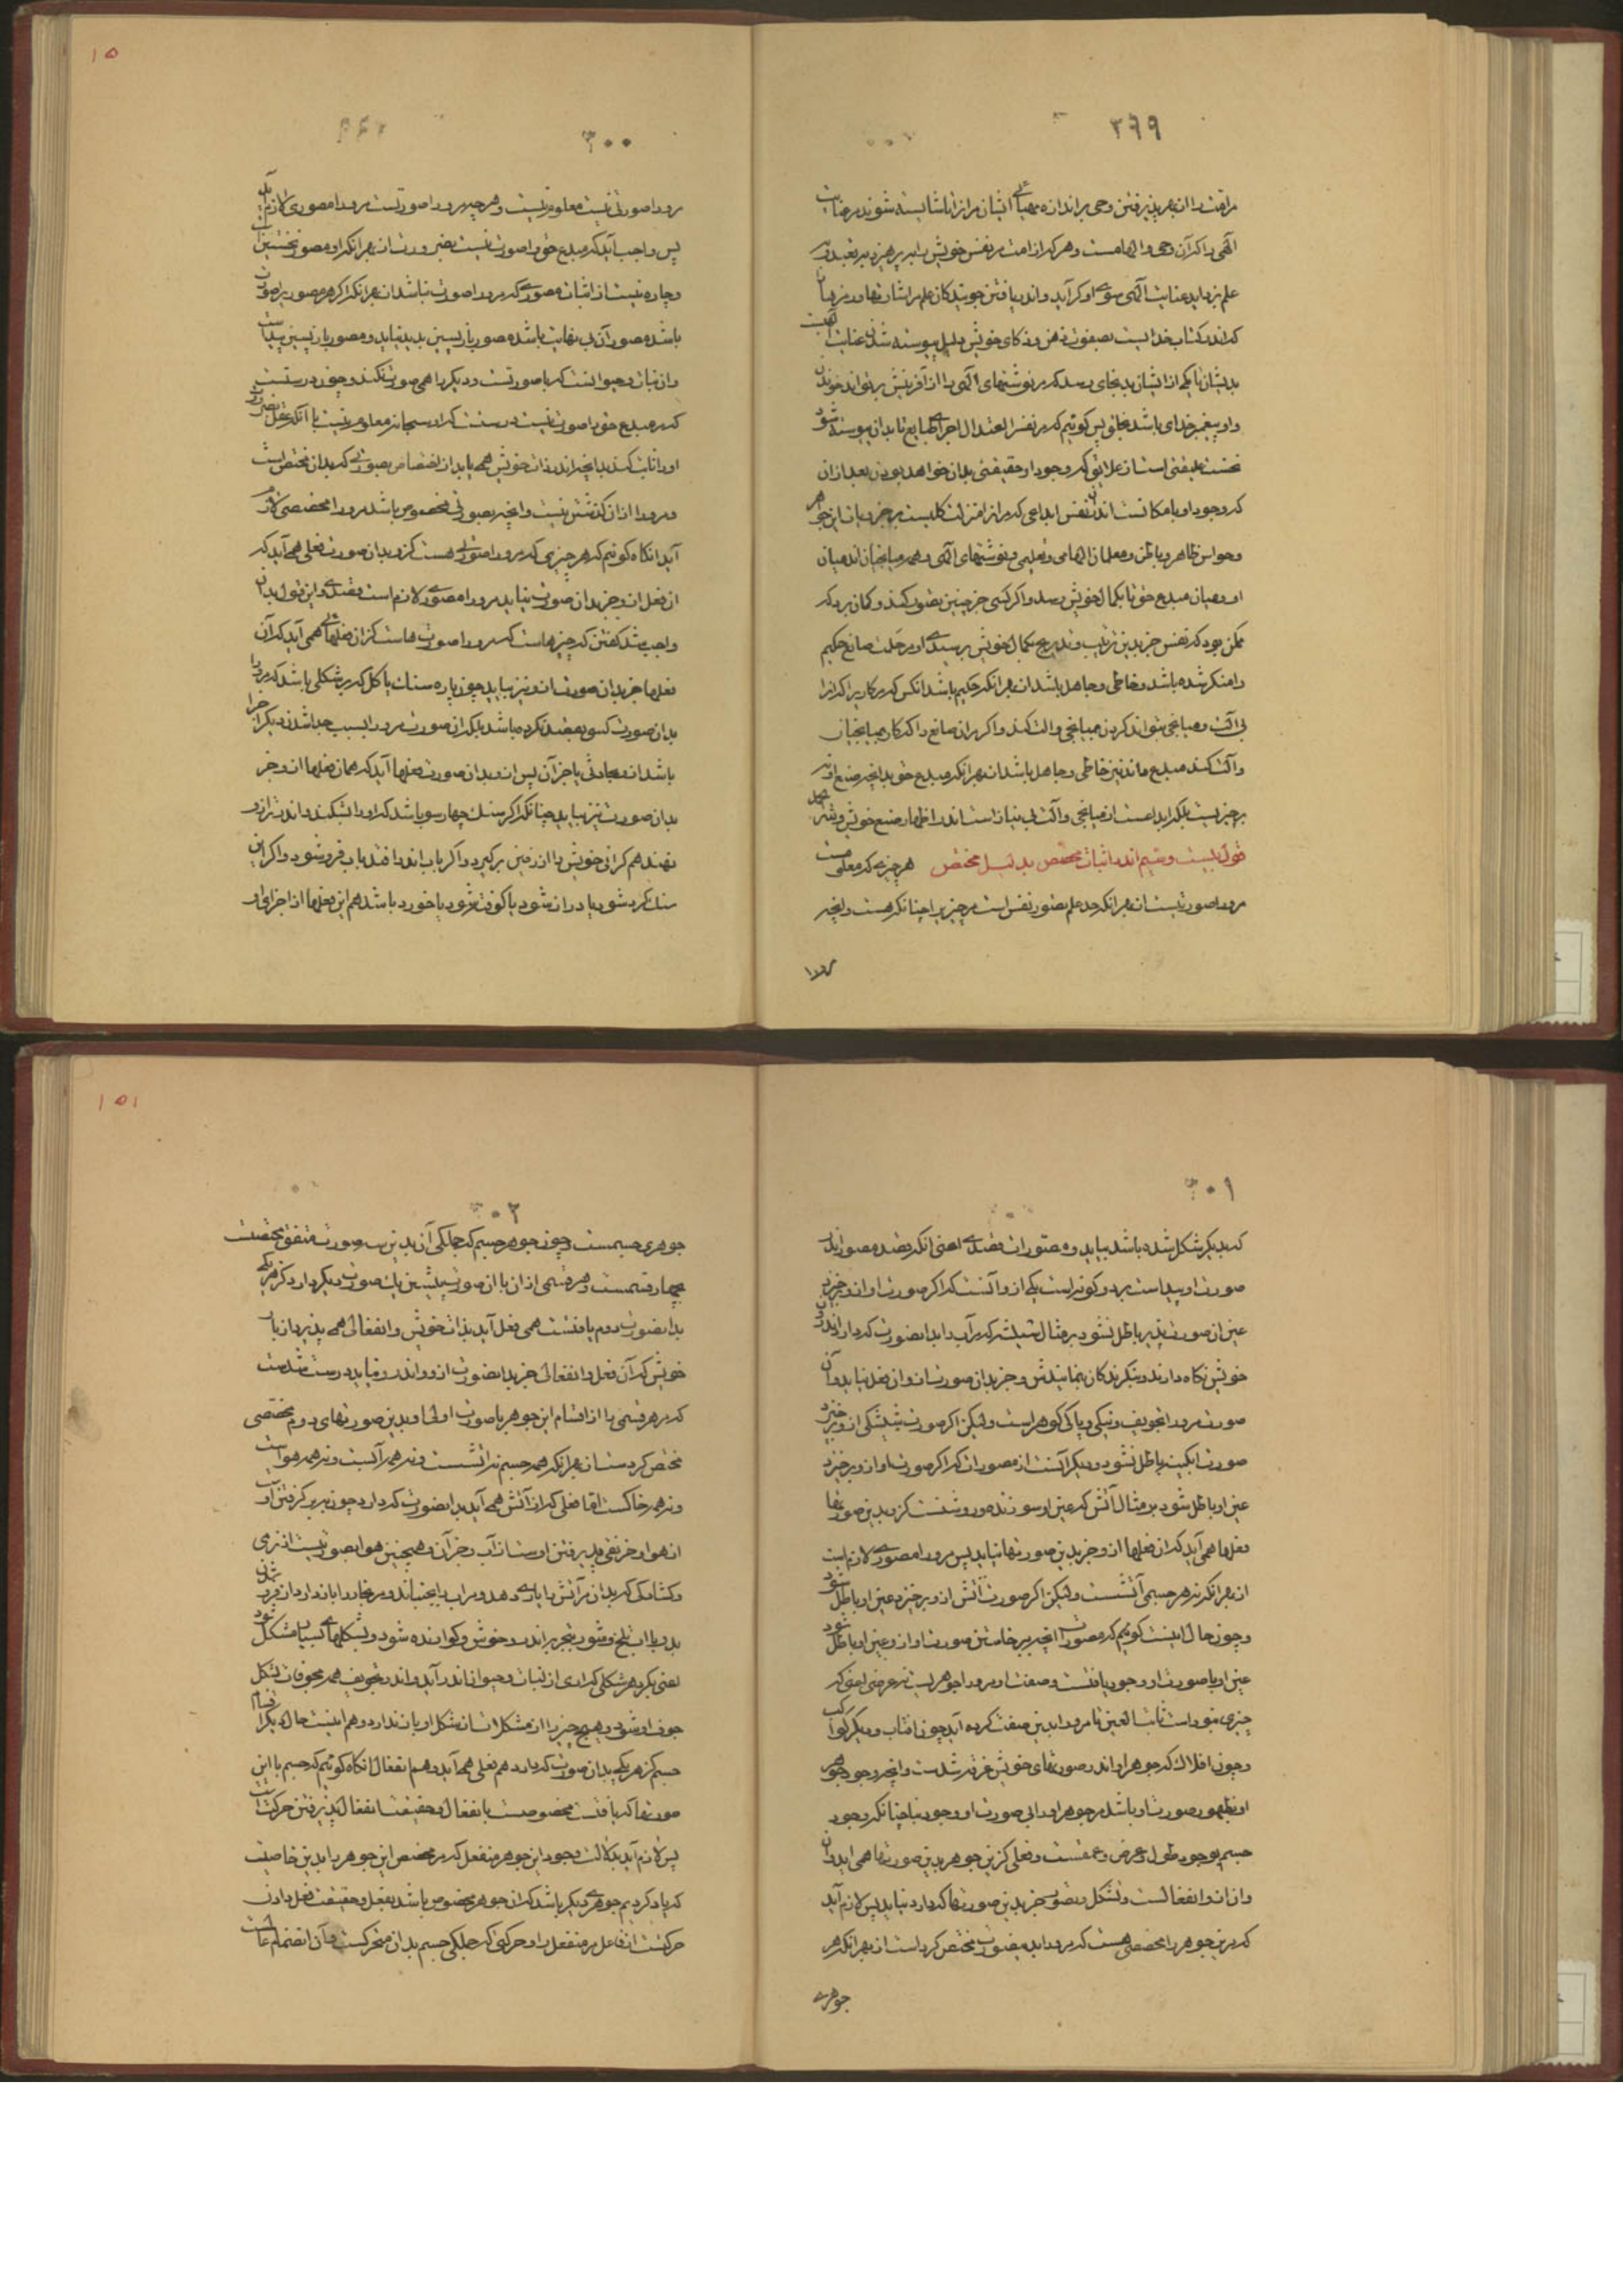 ۲۹۹
مر امت را از بهر پذیرفتن وحی بر اندازه مهیائی ایشان مر آنرا تا شایسته شوند مر عنایت
الهی را که آن وحی و الهامست و هر که از امت مر نفس خویش را بپرهیزد بر تعبد و در
علم بزداید عنایت الهی سوی او گراید و اندر یافتن جویندگان علم مر اشارتها و رمزها را
که اندر کتاب خدایست بصفوت ذهن و ذکای خویش دلیل پیوسته شدن عنایت الهیست
بدیشان تا یکی از ایشان بدانجای رسد که مر نوشتهای الهی را از آفرینش بتواند خواندن
و او پیغمبر خدای باشد بخلق پس گوئیم که مر نفس را اعتدال اجزای طبایع تا بدان پیوسته شود
نخست علیقتی است از علایق که وجود او حقیقتی بدان خواهد بودن بعد از آن
که وجود او بامکانست اندر نفس ابداعی که مر او را منزلت کلیست بر جزویات این جوهر
و حواس ظاهر و باطن و معلمان الهامی و تعلیمی و نوشتهای الهی و همه میانجیان اند میان
او و میان مبدع حق تا بکمال خویش رسد و اگر کسی جز چنین تصور کند و گمان برد که
ممکن بود که نفس جز بدین ترتیب و تدریج بکمال خویش برسیدی او مر حکمت صانع حکیم
را منکر شده باشد و خاطی و جاهل باشد از بهر آنکه حکیم باشد آنکس که مر کاری را که آنرا
بی آلت و میانجی بتواند کردن بمیانجی و آلت کند و اگر مر آن صانع را که کار بمیانجیان
و آلت کند مبدع ماند نیز خاطی و جاهل باشد از بهر آنکه مبدع حق بدانچه صنع او نه
بر چیز نیست بلکه ابداعست از میانجی و آلت بی نیاز است اندر اظهار صنع خویش
قول بیست و سیم اندر اثبات مخصص بدلیل مختص هر چیزی که معلومست
مرورا صورتیست از بهر آنکه حد علم تصور نفس است مر چیز را چنانکه هست و آنچه
مرورا
۳۰۰
مرورا صورتی نیست معلوم نیست و هر چه مرورا صورتست مرورا مصوری لازم آید
پس واجب آید که مبدع حق را صورت نیست بضرورت از بهر آنکه او مصور نخستین است
و چاره نیست از اثبات مصوری که مرورا صورت نباشد از بهر آنکه اگر هر مصوری را صورت
باشد مصوران بی نهایت باشد و مصور بازپسین پدید نیاید و مصور بازپسین پیداست
و آن نبات و حیوانست که با صورتست و دیگر را همی صورت نکند و چون درستست
که مر مبدع حق را صورت نیست درستست که او سبحانه معلوم نیست با آنکه عقل بضرورت
او را ثابت کند بدانچه اندر ذات خویش همی یابد از اختصاص بصورتی که بدان مختص است
و مرورا از آن گذشتن نیست و آنچه بصورتی مخصوص باشد مرورا مخصصی لازم
آید آنگاه گوئیم که هر چیزی که مرورا صورتی هست کزو بدان صورت فعلی همی آید که
آن فعل ازو جز بدان صورت نیاید مرورا مصوری لازم است قصدی و این قول بدان
واجب شد گفتن که چیزهاست که مرورا صورتهاست کز آن فعلهائی همی آید که آن
فعلها جز بدان صورت ازو نیز بیاید چون پاره سنگ یا گل که بر شکلی باشد که مرورا
بدان صورت کسی بقصد نکرده باشد بلکه آن صورت مرورا بسبب جدا شدن دیگر اجزا
باشد ازو بحادثی یا جز آن پس ازو بدان صورت فعلها آید که همان فعلها ازو جز
بدان صورت نیز بیاید چنانکه اگر سنگ چهارسو باشد که او را بشکنند و اندر ترازو
نهند هم گرانی خویش را از زمین برگیرد و اگر بآب اندر افتد بآب فرو شود و اگر این
سنگ گرد شود یا دراز شود یا کوفته شود یا خورد باشد هم این فعلها از اجزای او
۱۵
۳۰۱
که بدیگر شکل شده باشد بیاید و مصورات قصدی اعنی آنکه قصد مصور اندر
صورت او پیداست بر دو گونه است یکی ازو آنست که اگر صورت او ازو برخیزد
عین آن صورت پذیر باطل نشود بر مثال شیشه که مر آب را بدان صورت که دارد اندرون
خویش نگاه دارد و بنگرندگان بنمایدش و جز بدان صورت ازو آن فعل نیاید و آن
صورت مرورا تجویف و تنکی و پاکی گوهر است ولیکن اگر صورت شیشگی ازو برخیزد
صورت آبگینه باطل نشود و دیگر آنست از مصورات که اگر صورت او ازو برخیزد
عین او باطل شود بر مثال آتش که عین او سوزنده و روشنست کزو بدین صورتها
فعلها همی آید که آن فعلها ازو جز بدین صورتها نیاید پس مرورا مصوری لازم است
از بهر آنکه نه هر جسمی آتشست ولیکن اگر صورت آتش ازو برخیزد عین او باطل شود
و چون حال اینست گوئیم که مصورات آنچه ببرخاستن صورت او ازو عین او باطل شود
عین او با صورت او وجود یافتست و صفت او مرورا جوهریست نه عرضی اعنی که
چیزی نبوداست ثابت العین تا مرورا بدین صفت کرده آید چون آفتاب و دیگر کواکب
و چون افلاک که جوهر او اندر صورتهای خویش غرقه شدست و آنچه وجود جوهر
او بظهور صورت او باشد مر جوهر او را بی صورت او وجود نباشد چنانکه وجود
جسم بوجود طول و عرض و عمقست و فعلی کزین جوهر بدین صورتها همی آید و آن
و آن ازو انفعالست و تشکل و تصور جز بدین صورتها که دارد نیاید پس لازم آید
که مرین جوهر را مخصصی هست که مرورا بدین صورت مختص کرد است از بهر آنکه هر
جوهری
۳۰۲
جوهری جسمست و چون جوهر جسم که جملگی آن بدین سه صورت متفق مختصست
بچهار قسمست و هر قسمی از آن با آن صورت پیشین یک صورت دیگر دارد کز هر یکی
بدان صورت دوم یافتست همی فعل آید بذات خویش و انفعالی همی پذیرد از یار
خویش که آن فعل و انفعال جز بدان صورت ازو و اندرو نیاید درست شدست
که مر هر قسمی را از اقسام این جوهر با صورت اولی او بدین صورتهای دوم مخصصی
مختص کردست از بهر آنکه همه جسم نه آتشست و نه همه آبست و نه همه هواست
و نه همه خاکست اما فعلی که از آتش همی آید بدان صورت که دارد چون زبر گرفتن او
از هوا و خریقی پذیرفتن اوست از آب و جز آن و همچنین هوا بصورتیست از نرمی
و گشادگی که بدان مر آتش را یاری دهد و مر آب را بجنباند و مر بخار را باز دارد از فرو شدن
بدو یا آب تلخ و شور بتجزیه اندرو خوش و گوارنده شود و بشکلهای بسیار مشکل شود
اعنی بگرد هر شکلی که آری از نبات و حیوان اندر آید و اندر تجویف همه مجوفات بشکل
جوف او شود و هیچ چیز را از متشکلات از تشکل او باز ندارد و هم اینست حال دیگر اقسام
جسم کز هر یکی بدان صورت که دارد هم فعلی همی آید و هم انفعال آنگاه گوئیم که جسم با این
صورتها که یافتست مخصوصست بانفعال و حقیقت انفعال پذیرفتن حرکت است
پس لازم آید بدلالت وجود این جوهر منفعل که مر مخصص این جوهر را بدین خاصیت
که یاد کردیم جوهری دیگر باشد که آن جوهر مخصوص باشد بفعل و حقیقت فعل دادن
حرکتست از فاعل مر منفعل را و حرکتی که جملگی جسم بدان متحرکست و آن انضمام
۱۵۱